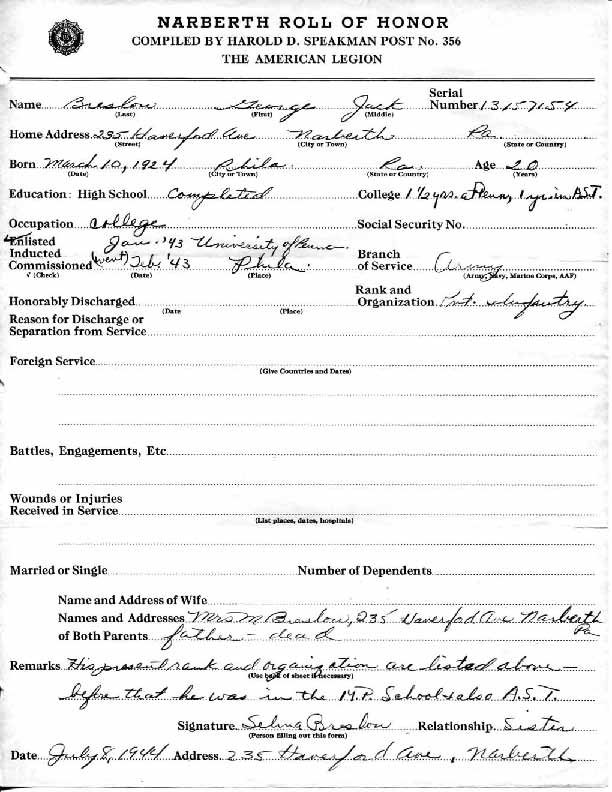 NARBERTH ROLL OF HONOR
COMPILED BY HAROLD D. SPEAKMAN POST No. 356
THE AMERICAN LEGION
Name Breslow George Jack Serial Number 13157154
(Last) (First) (Middle)
Home Address 235 Haverford Ave Narberth Pa.
(Street) (City or Town) (State or Country)
Born March 10, 1924 Phila. Pa. Age 20
(Date) (City or Town) (State or Country) (Years)
Education: High School Completed College 1 1/2 yrs. at Penn, 1 yr in A.S.T.
Occupation College Social Security No.
Enlisted Jan. '43 University of Penna.
Inducted
Commissioned (went) Feb. '43 Phila. Branch of Service Army
√ (Check) (Date) (Place) (Army, Navy, Marine Corps, AAF)
Honorably Discharged Rank and Organization Pvt. Infantry
(Date (Place)
Reason for Discharge or
Separation from Service
Foreign Service
(Give Countries and Dates)
Battles, Engagements, Etc.
Wounds or Injuries
Received in Service
(List places, dates, hospitals)
Married or Single Number of Dependents
Name and Address of Wife
Names and Addresses Mrs M Breslow, 235 Haverford Ave Narberth
of Both Parents father - dead Pa
Remarks His present rank and organization are listed above -
(Use back of sheet if necessary)
before that he was in the M.P. School & also A.S.T.
Signature Selma Breslow Relationship Sister
(Person filling out this form)
Date July 8, 1944 Address 235 Haverford Ave, Narberth